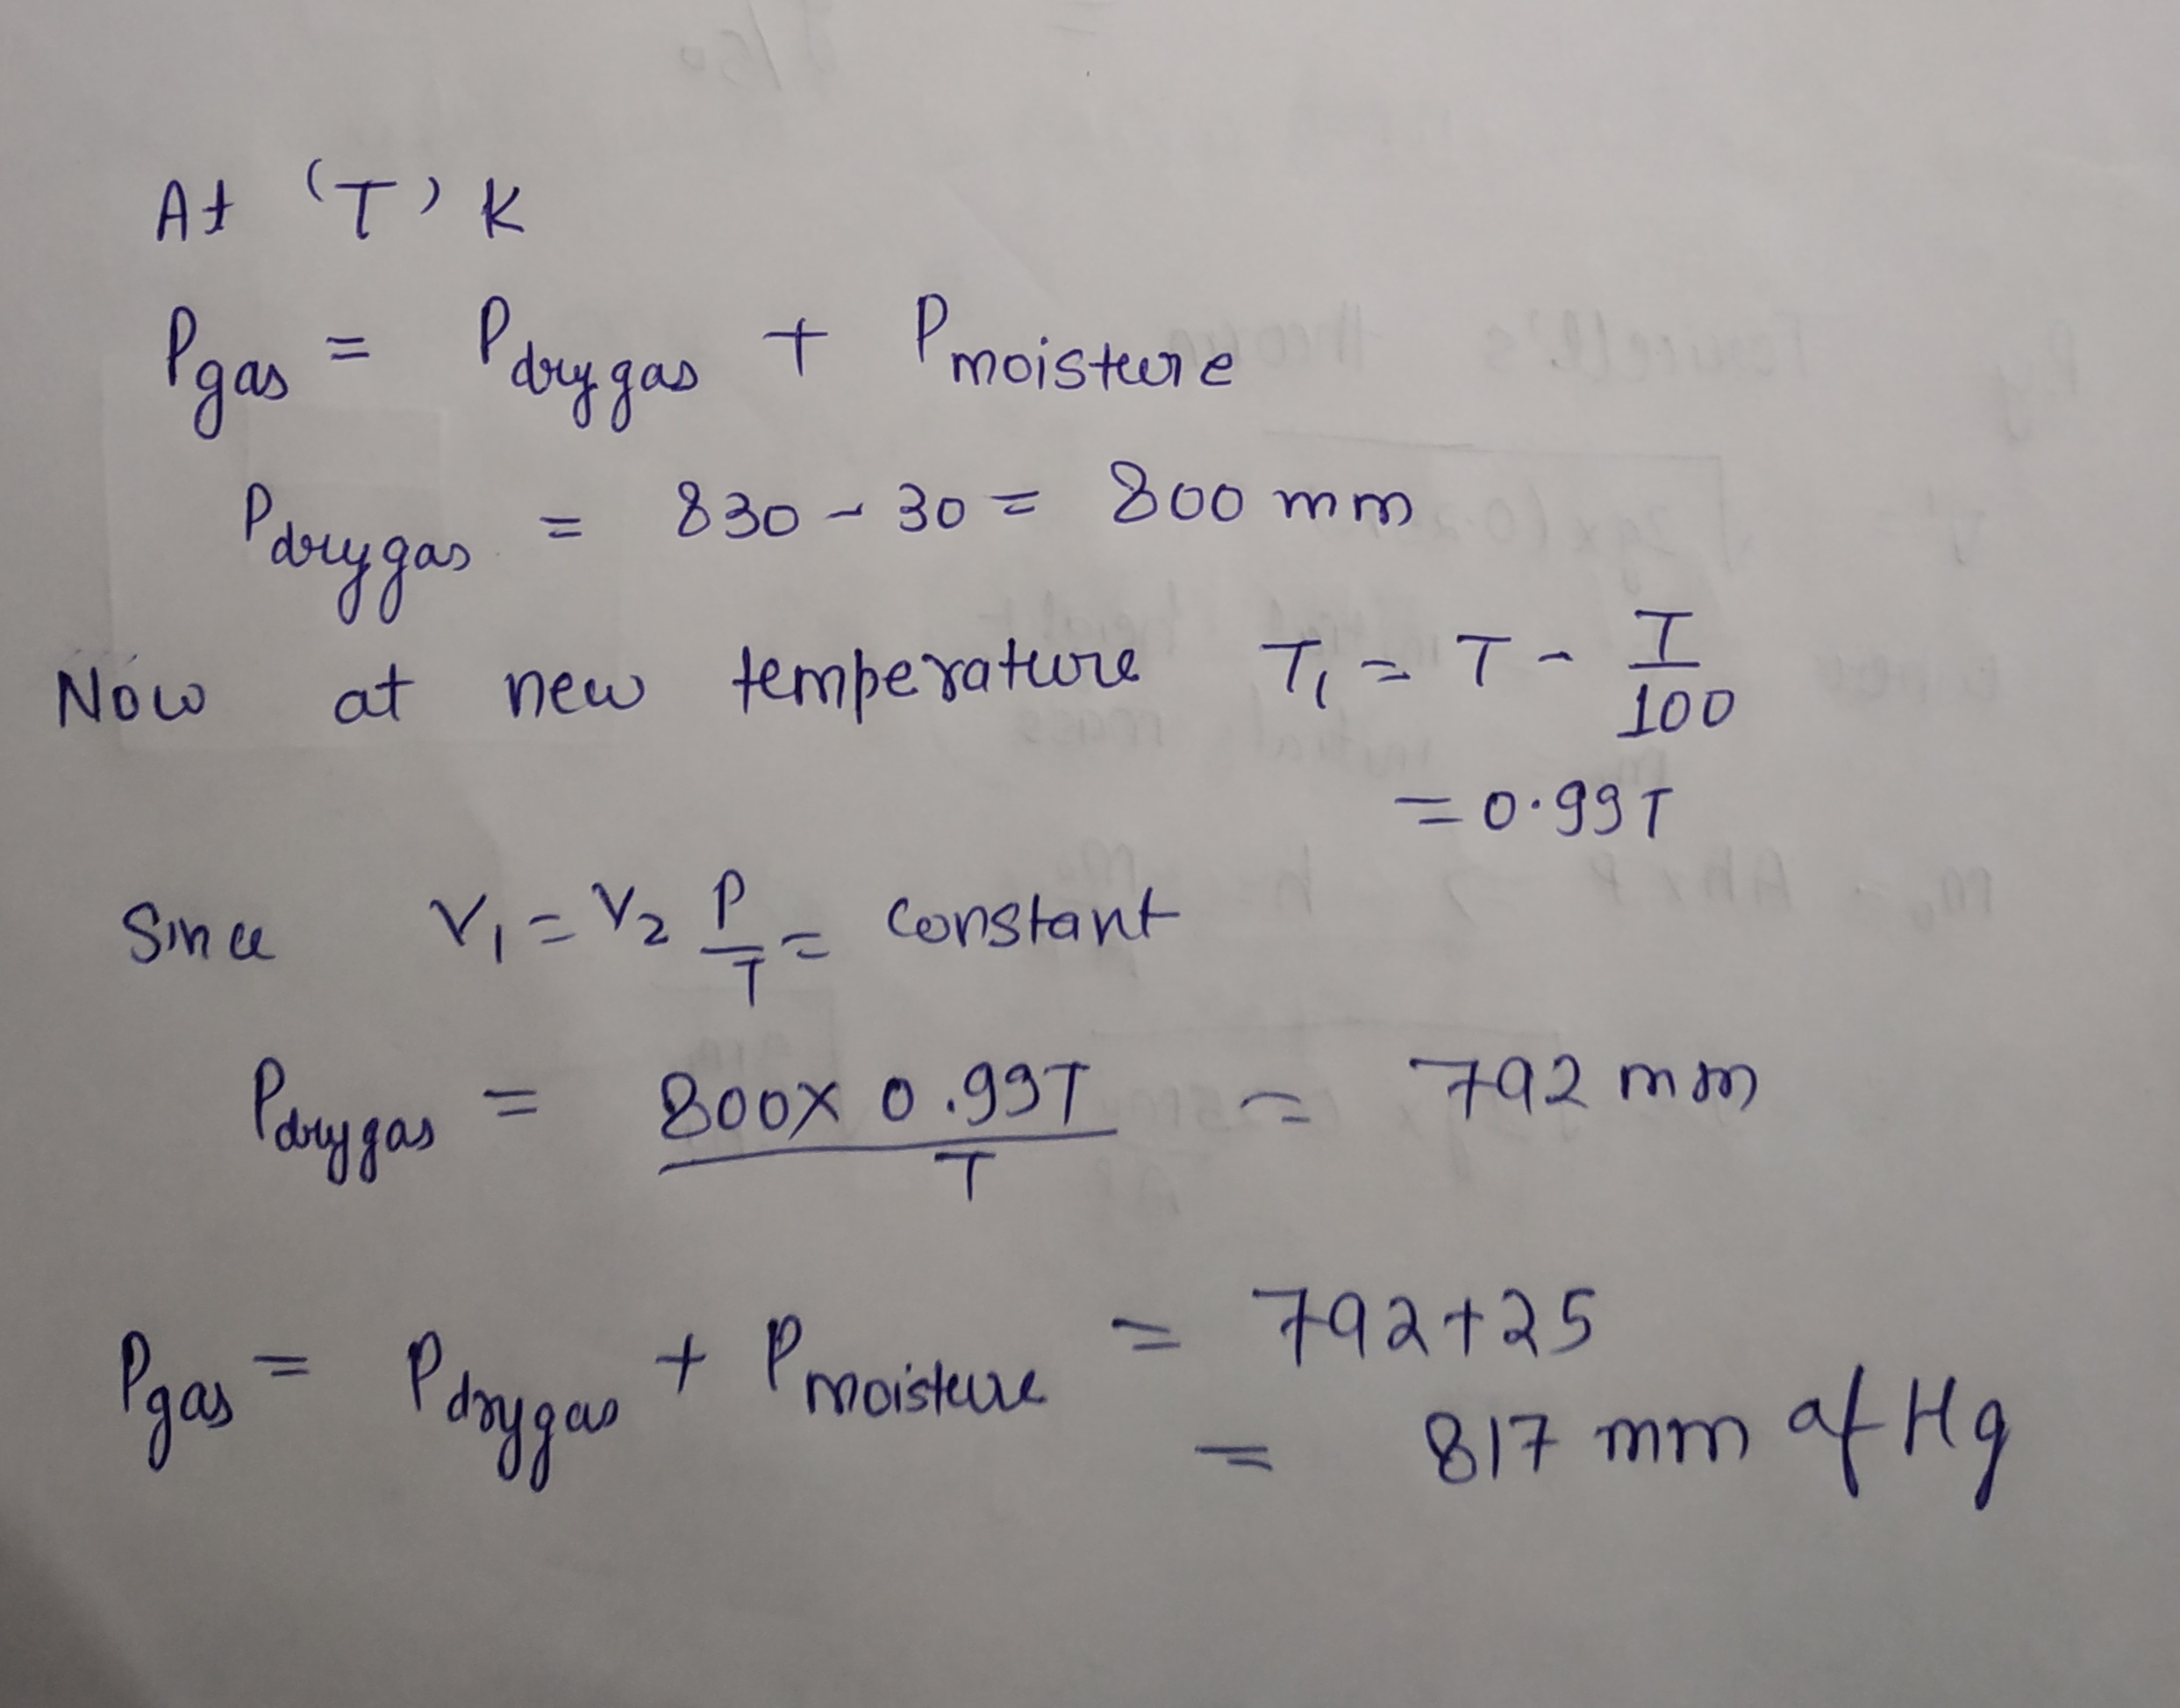 At 'T' K
Pgas = Pdrygas + Pmoisture
Pdrygas = 830 - 30 = 800 mm
Now at new temperature T1 = T - T/100
= 0.99T
Since V1 = V2 P/T = constant
Pdrygas = 800 x 0.99T / T = 792 mm
Pgas = Pdrygas + Pmoisture = 792+25
= 817 mm of Hg